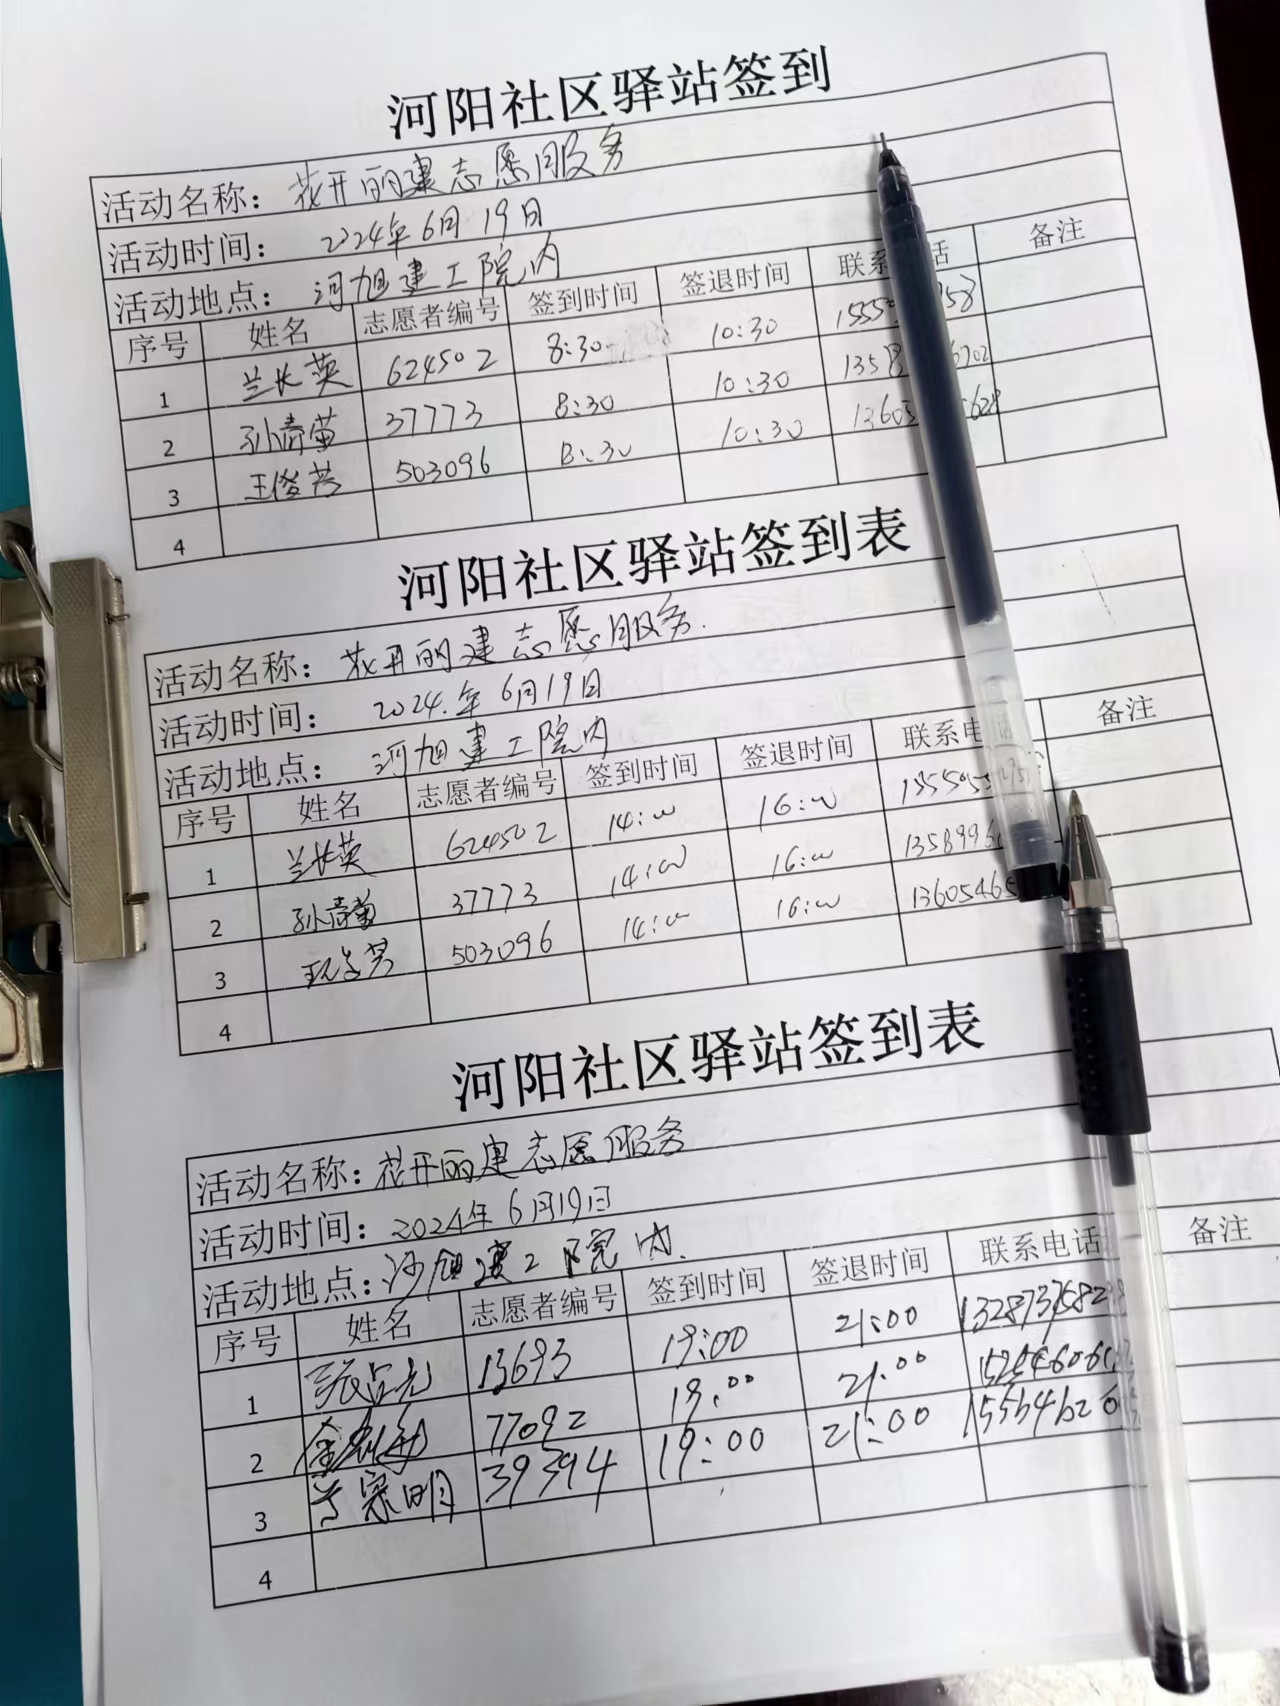 河阳社区驿站签到
活动名称：花开丽建志愿服务
活动时间：2024年6月19日
活动地点：河旭建工院内
序号 姓名 志愿者编号 签到时间 签退时间 联系 话 备注
1 兰长英 624502 8:30 10:30
2 孙青菊 37773 8:30 10:30
3 王俊芳 503096 8:30 10:30
4
河阳社区驿站签到表
活动名称：花开丽建志愿服务.
活动时间：2024.年6月19日
活动地点：河旭建工院内
序号 姓名 志愿者编号 签到时间 签退时间 联系电 备注
1 兰长英 624502 14:00 16:00
2 孙青菊 37773 14:00 16:00
3 503096 14:00 16:00
4
河阳社区驿站签到表
活动名称：花开丽建志愿服务
活动时间：2024年6月19日
活动地点：河旭建工院内.
序号 姓名 志愿者编号 签到时间 签退时间 联系电话 备注
1 13693 19:00 21:00
2 77092 19:00 21:00
3 39394 19:00 21:00
4